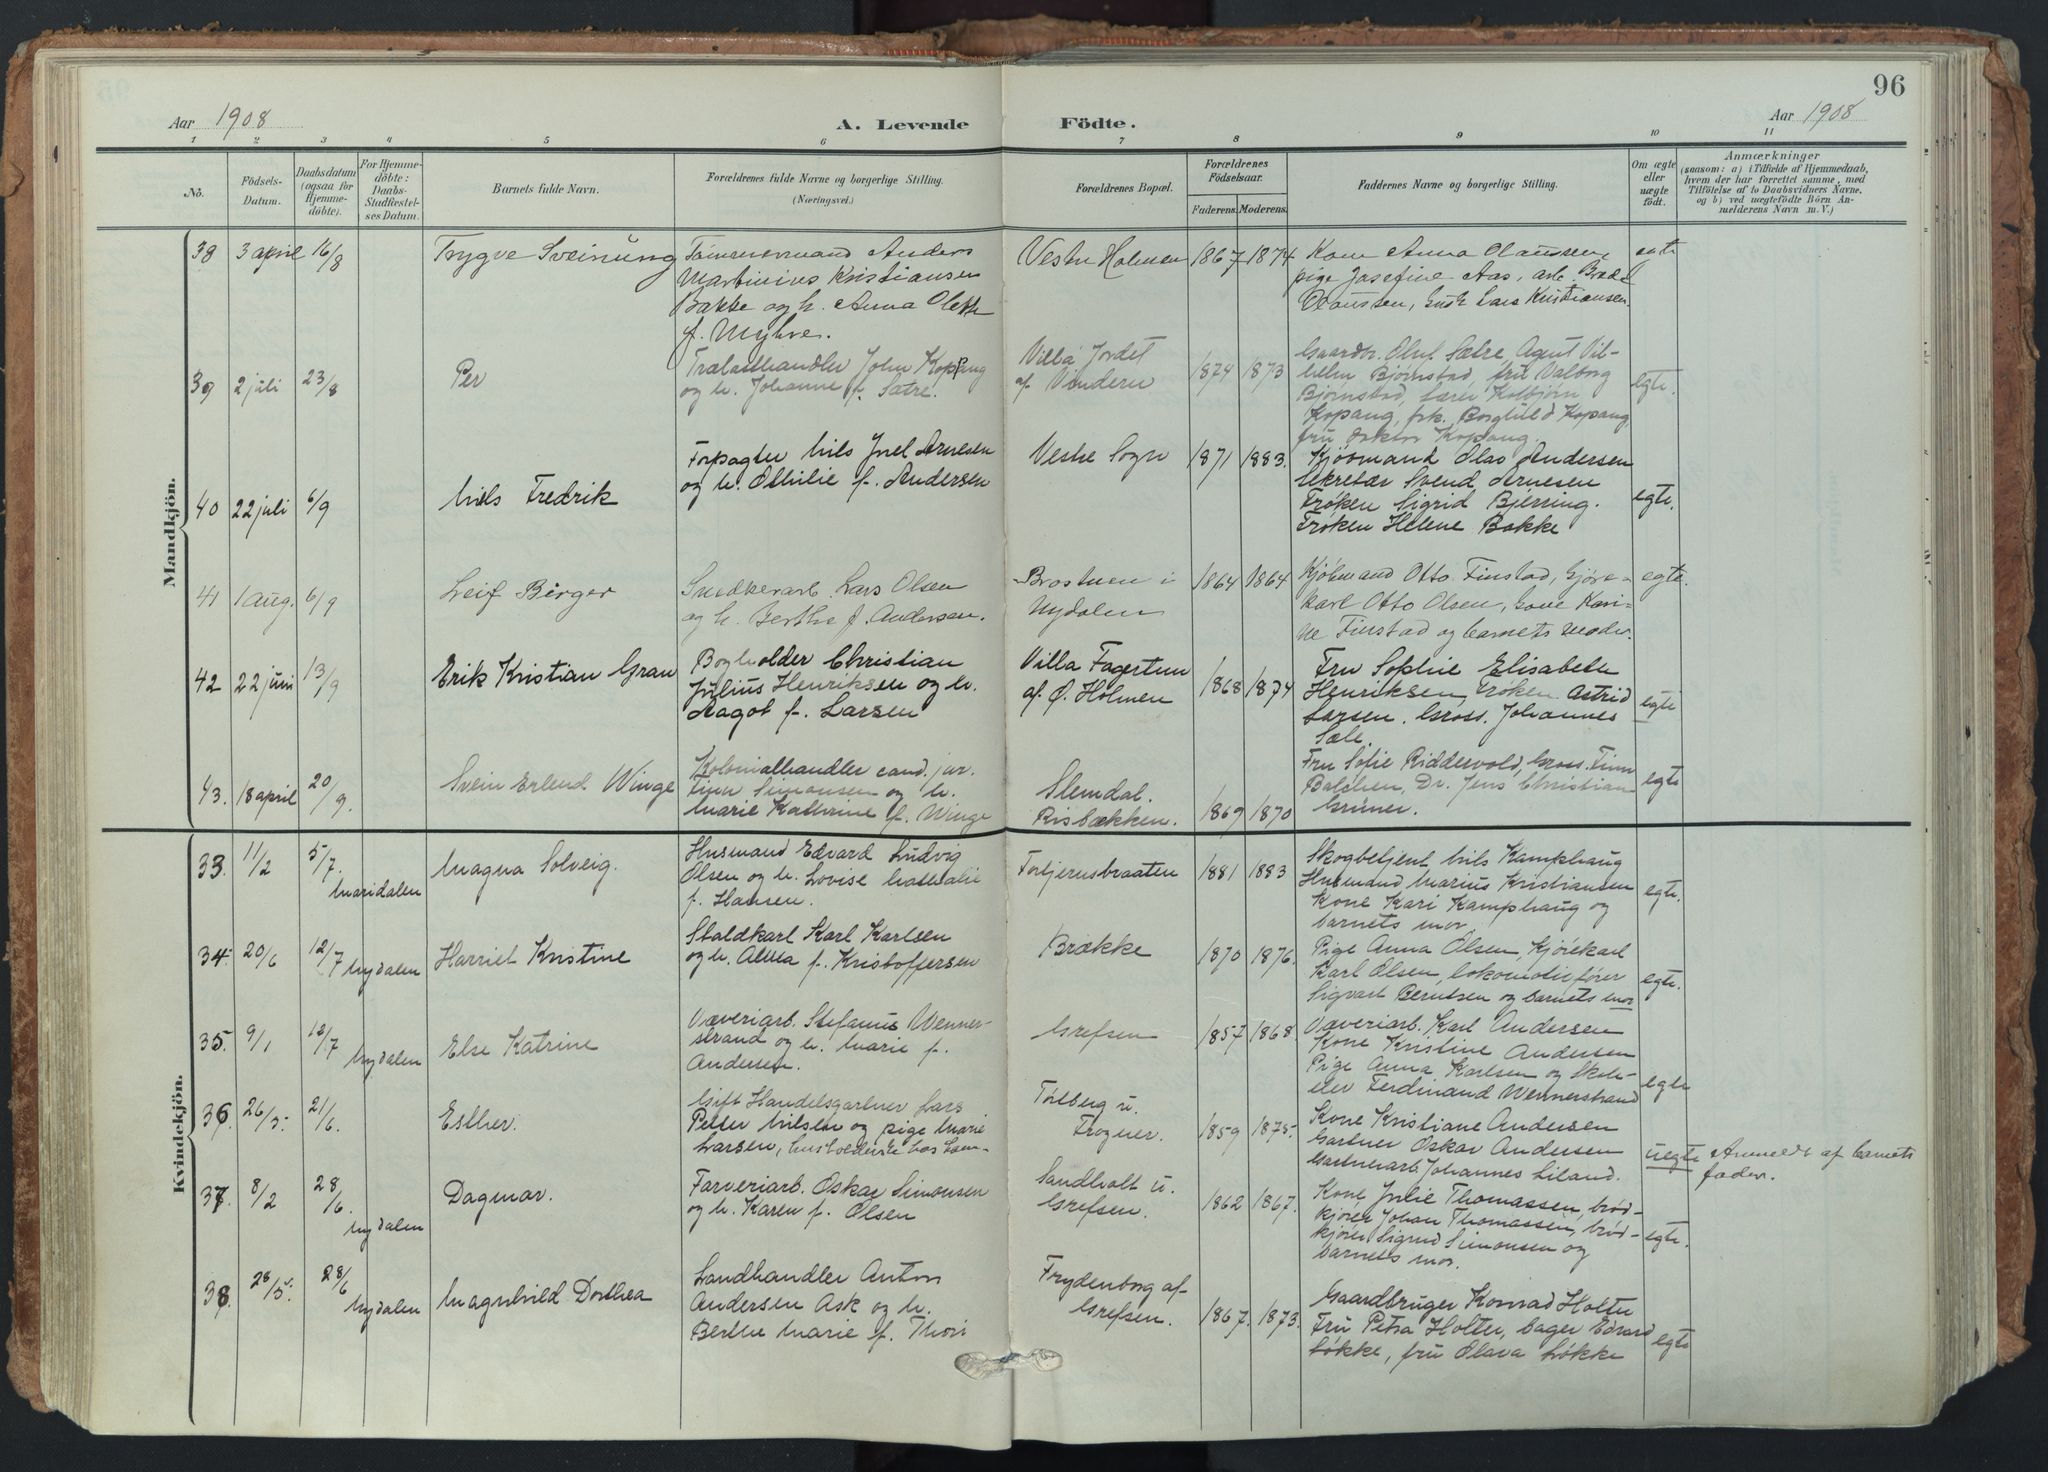 96
Aar 1908
A. Levende Födte.
Aar 1908
1 2 3 4 5 6 7 8 9 10 11
No.
Födsels-
Datum.
Daabsdatum
(ogsaa for
Hjemme-
döbte).
For Hjemme-
döbte:
Daabs-
Stadfæstel-
ses Datum.
Barnets fulde Navn.
Forældrenes fulde Navne og borgerlige Stilling.
(Næringsvei.)
Forældrenes Bopæl.
Forældrenes
Födselsaar.
Faderens. Moderens.
Faddernes Navne og borgerlige Stilling.
Om ægte
eller
uægte
födt.
Anmærkninger
(saasom: a) i Tilfælde af Hjemmedaab,
hvem der har forrettet samme, med
Tilföielse af to Daabsvidners Navne,
og b) ved uægtefödte Börn An-
melderens Navn m. V.)
Mandkjön.
38 3 april 16/8
Trygve Sveinung
Tømmermand Anders
Martinius Kristiansen
Bakke og h. Anna Olette
f. Myhre.
Vestre Holmen
1867 1874
Kone Anna Claussen
pige Josefine Aas, arb.
Claussen, Lars Kristiansen.
egte
39 2 juli 23/8
Per
Trælasthandler John Koppang
og h. Johanne f. Sætre.
Villa Jordet
af Vinderen
1874 1873
Gaardbr. Olul Sætre, Agent Vil-
helm Bjørnstad, fru Valborg
Bjørnstad, Kolbjørn
Kopang, frk. Borghild Kopang,
fru doktor Kopang.
egte.
40 22 juli 6/9
Nils Fredrik
Forpagter Nils Juel Arnesen
og h. Othilie f. Andersen
Vestre Sogn
1871 1883.
Kjøbmand Olaf Andersen
Sekretær Svend Arnesen
Frøken Sigrid Bjerring.
Frøken Helene Bakke
egte.
41 1 aug. 6/9
Leif Birger
Snedkerarb. Lars Olsen
og h. Berthe f. Andersen.
Brostuen i
Nydalen
1864 1864
Kjøbmand Otto Finstad, kjøre-
karl Otto Olsen, Kari-
ne Finstad og barnets moder.
egte.
42 22 juni 13/9
Erik Kristian Gran
Bogholder Christian
Julius Henriksen og h.
Magot f. Larsen
Villa Fagertun
af Ø. Holmen
1868 1874
Fru Sophie Elisabeth
Henriksen, Frøken Astrid
Larsen. Gross. Johannes
Sæle.
egte
43. 18 april 20/9.
Svein Erlend Winge
Kolonialhandler cand. jur.
Finn Simonsen og h.
Marie Kathrine f. Winge
Slemdal.
Risbækken.
1869 1870
Fru Sofie Riddervold, Gross. Finn
Balchen, Dr. Jens Christian
Grüner.
egte
Kvindekjön.
33. 11/2 5/7. Maridalen
Magna Solveig.
Husmand Edvard Ludvig
Olsen og h. Lovise Nathalie
f. Hansen.
Turtjernsbraaten
1881 1883
Skogbetjent Nils Kamphaug
Husmand Marius Kristiansen
Kone Kari Kamphaug og
barnets mor
egte.
34. 20/6 12/7 Nydalen
Harriet Kristine
Staldkarl Karl Karlsen
og h. Alma f. Kristoffersen
Brække
1870 1876.
Pige Anna Olsen, Kjørekarl
Karl Olsen, lokomotivfører
Sigvart Berntsen og barnets mor
egte.
35. 9/1 12/7 Nydalen
Else Katrine
Væveriarb. Stefanus Wenner-
strand og h. Marie f.
Andersen.
Grefsen
1857 1868.
Væveriarb. Karl Andersen
Kone Kristine Andersen
Pige Anna Karlsen og Skole-
elev Ferdinand Wennerstrand
egte
36. 26/5. 21/6.
Esther.
Gift Handelsgartner Lars
Petter Nilsen og pige Marie
Larsen, husholderske hos ham
Torberg u.
Frogner.
1859 1875.
Kone Kristiane Andersen
Gartner Oskar Andersen
Gartnerarb. Johannes Liland.
uegte
Anmeldt af barnets
fader.
37 8/2 28/6. Nydalen
Dagmar.
Farveriarb. Oskar Simonsen
og h. Karen f. Olsen
Sandholt u.
Grefsen.
1862 1867.
Kone Julie Thomassen, brød-
kjører Johan Thomassen, brød-
kjører Sigurd Simonsen og
barnets mor.
egte.
38. 28/5. 28/6 Nydalen
Magnhild Dorthea
Landhandler Anton
Andersen Ask og h.
Berthe Marie f. Thori
Frydenborg af
Grefsen.
1867. 1873.
Gaardbruger Konrad Holter
Fru Petra Holter, bager Edvard
Løkke, fru Olava Løkke
egte